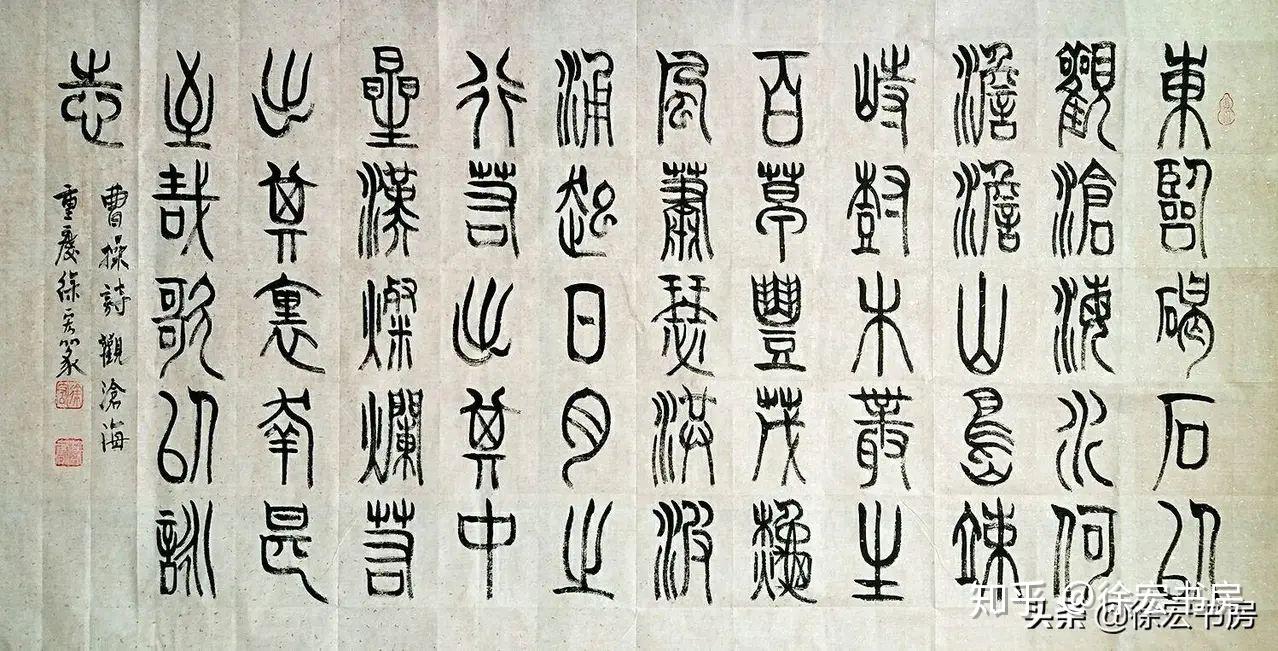 東臨碣石以
觀滄海水何
澹澹山島竦
峙樹木叢生
百草豐茂秋
風蕭瑟洪波
涌起日月之
行若出其中
星漢燦爛若
出其裏幸甚
至哉歌以詠
志
曹操詩觀滄海
重慶徐宏篆
知乎 @徐宏书房
头条 @徐宏书房